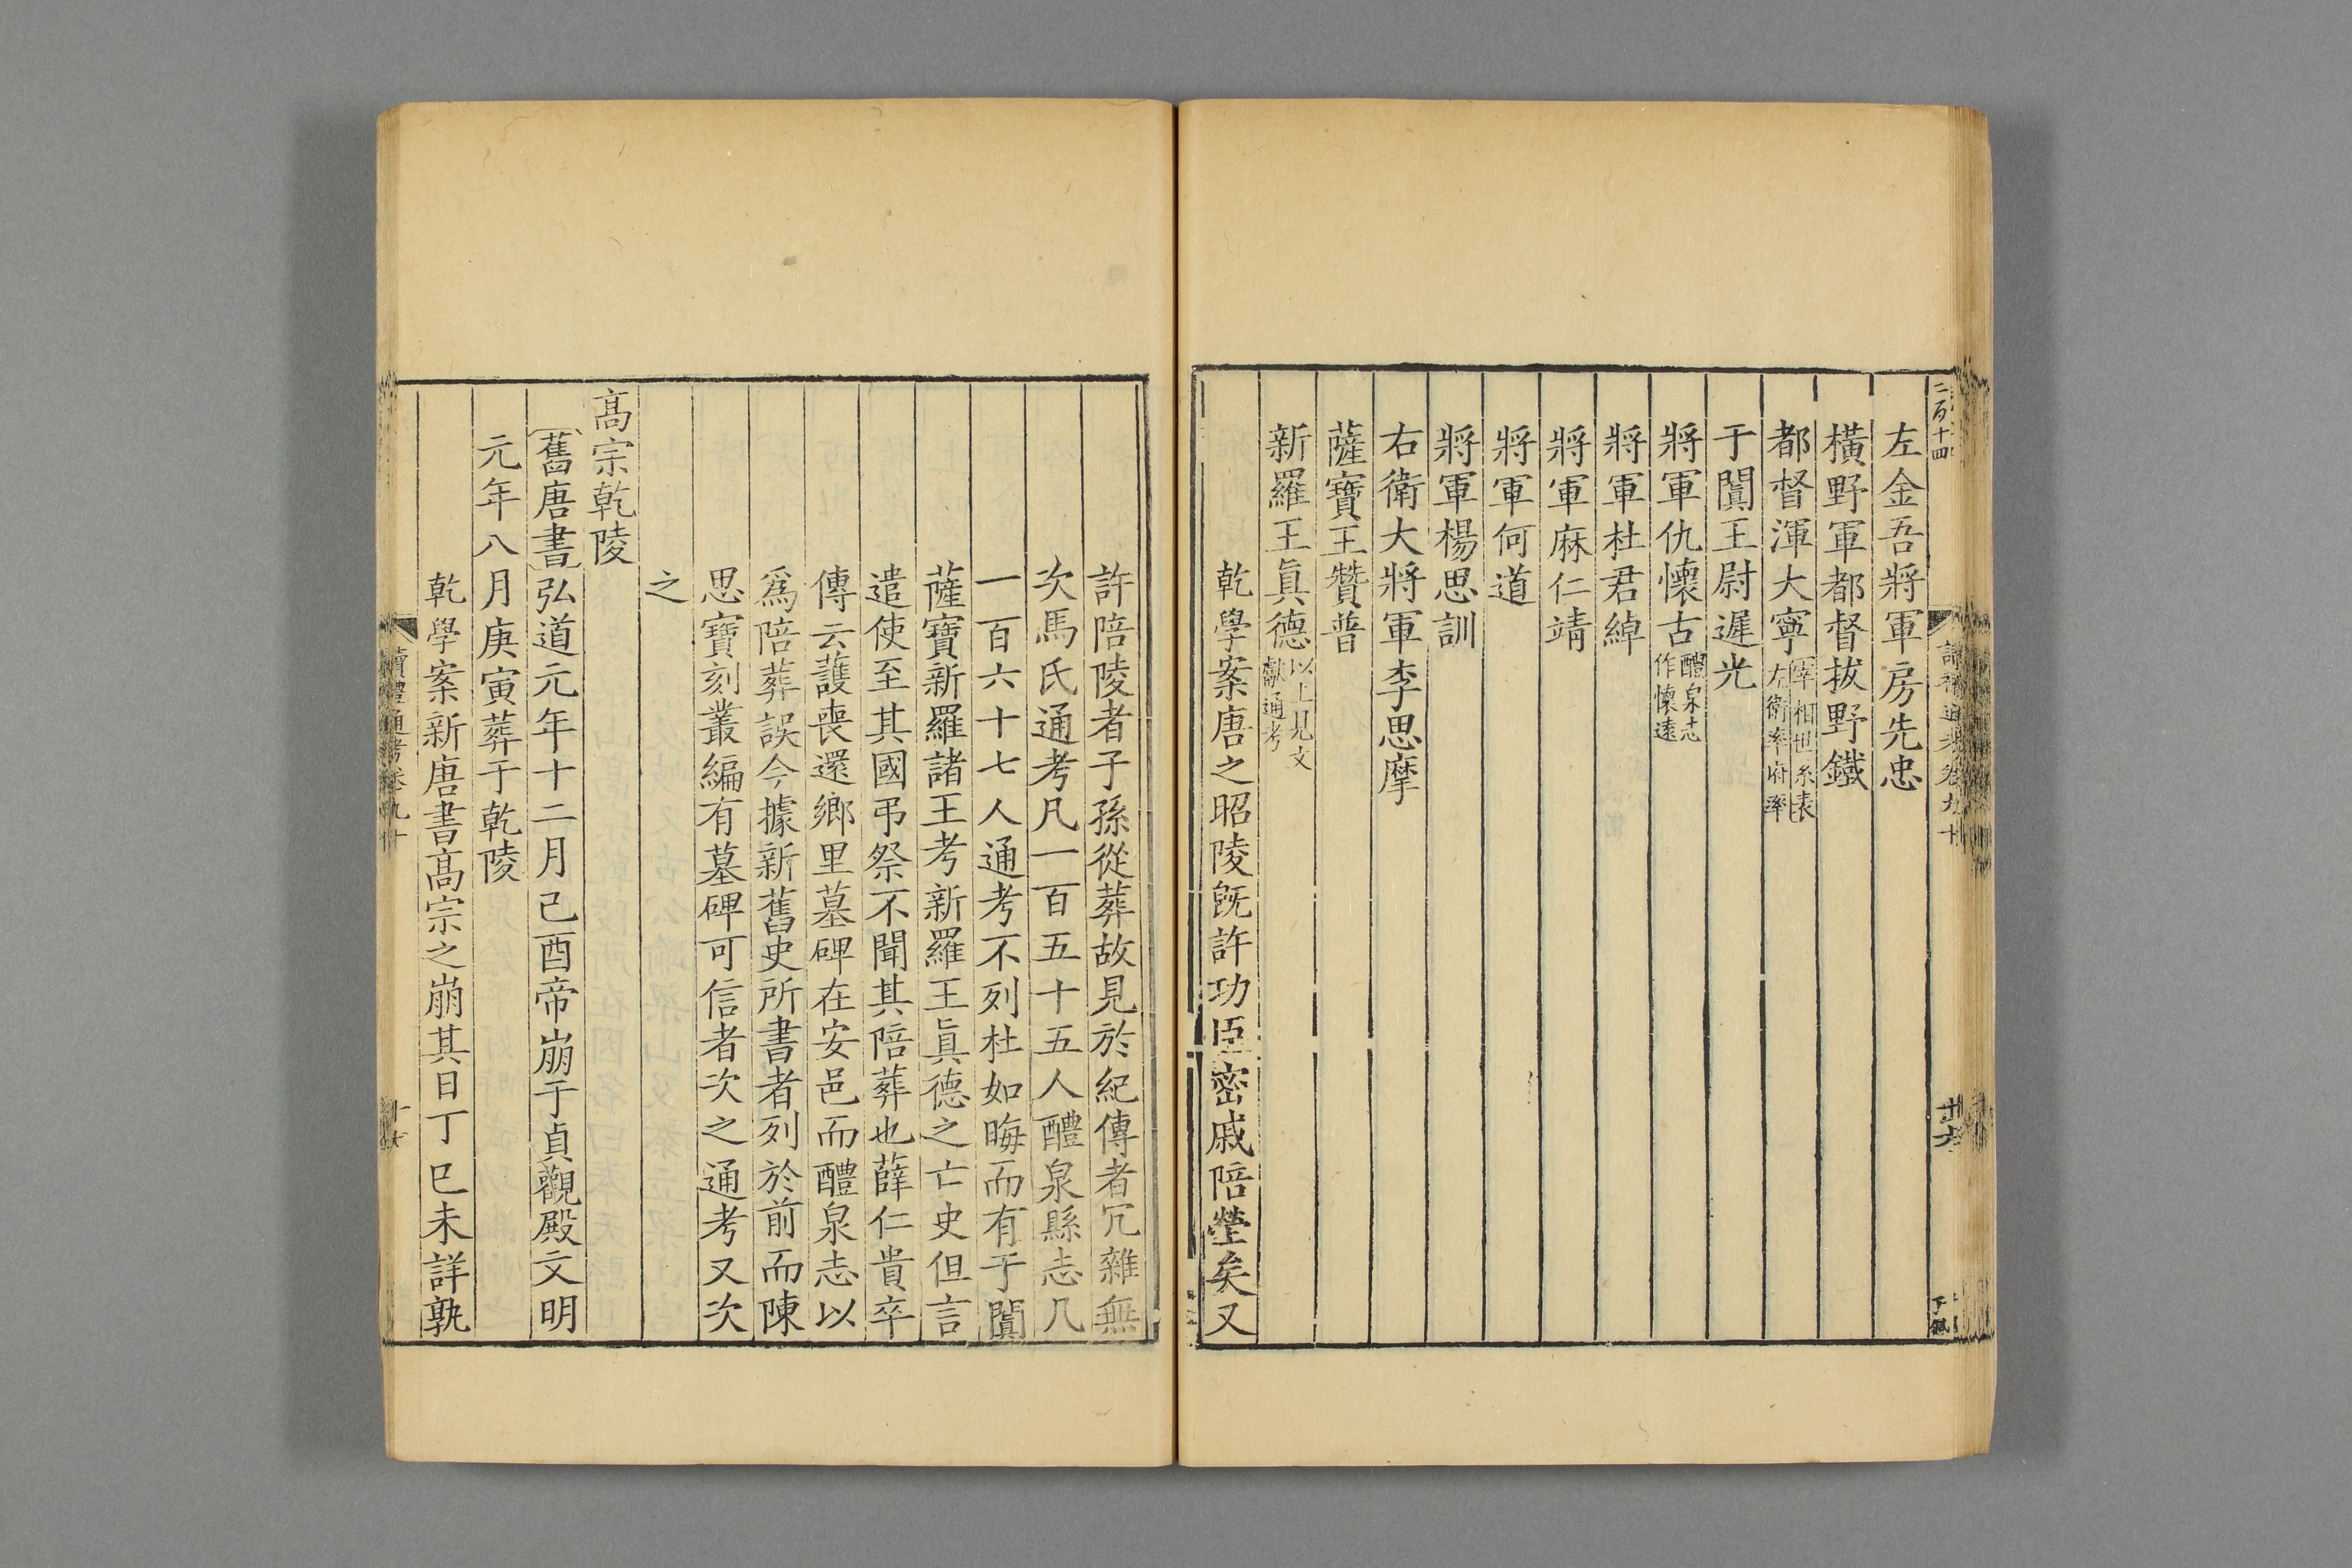 二百十四
讀禮通考卷九十
卄六
左金吾將軍房先忠
橫野軍都督拔野鐵
都督渾大寧宰相世系表左衛率府率
于闐王尉遲光
將軍仇懷古醴泉志作懷遠
將軍杜君綽
將軍麻仁靖
將軍何道
將軍楊思訓
右衛大將軍李思摩
薩寶王贊普
新羅王眞德以上見文獻通考
乾學案唐之昭陵旣許功臣密戚陪塋矣又
許陪陵者子孫從葬故見於紀傳者冗雜無
次馬氏通考凡一百五十五人醴泉縣志凡
一百六十七人通考不列杜如晦而有于闐
薩寶新羅諸王考新羅王眞德之亡史但言
遣使至其國弔祭不聞其陪葬也薛仁貴卒
傳云護喪還鄉里墓碑在安邑而醴泉志以
爲陪葬誤今據新舊史所書者列於前而陳
思寶刻叢編有墓碑可信者次之通考又次
之
高宗乾陵
〔舊唐書〕弘道元年十二月己酉帝崩于貞觀殿文明
元年八月庚寅葬于乾陵
乾學案新唐書高宗之崩其日丁巳未詳孰
讀禮通考卷九十